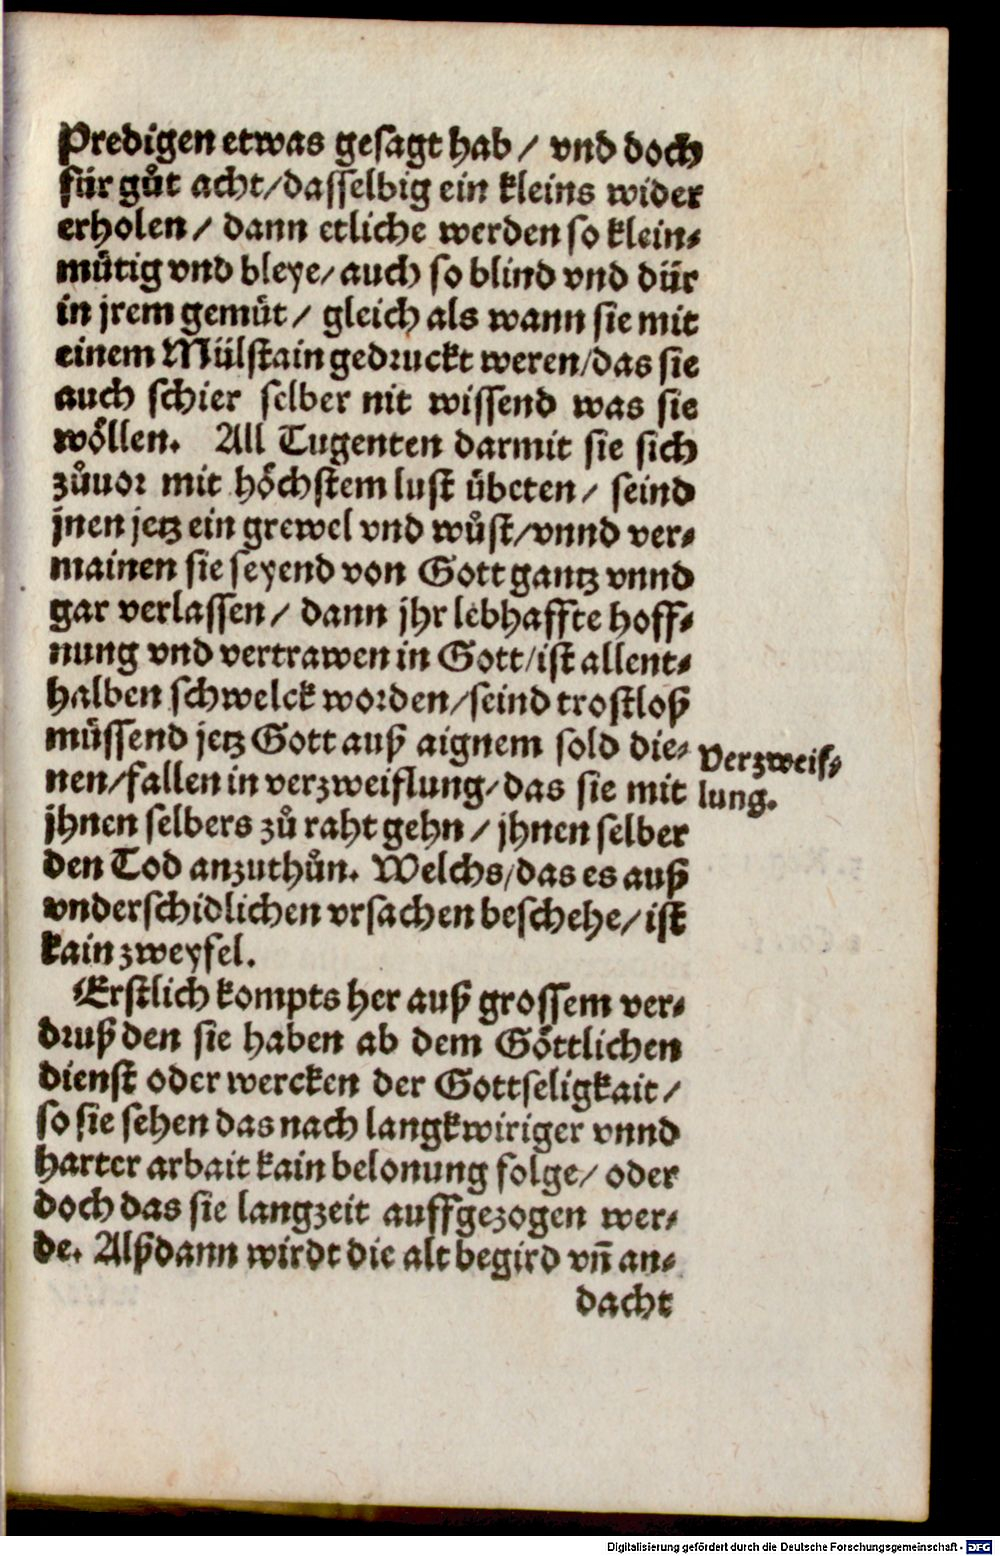 Predigen etwas gesagt hab / vnd doch
für gůt acht / dasselbig ein kleins wider
erholen / dann etliche werden so klein⸗
mütig vnd bleye / auch so blind vnd dür
in jrem gemüt / gleich als wann sie mit
einem Mülstain gedruckt weren / das sie
auch schier selber nit wissend was sie
wöllen. All Tugenten darmit sie sich
zůuor mit höchstem lust übeten / seind
jnen jetz ein grewel vnd wůst / vnnd ver⸗
mainen sie seyend von Gott gantz vnnd
gar verlassen / dann jhr lebhaffte hoff⸗
nung vnd vertrawen in Gott / ist allent⸗
halben schwelck worden / seind trostloß
müssend jetz Gott auß aignem sold die⸗
nen / fallen in verzweiflung / das sie mit
jhnen selbers zů raht gehn / jhnen selber
den Tod anzuthůn. Welchs / das es auß
vnderschidlichen vrsachen beschehe / ist
kain zweyfel.
Verzweif⸗
lung.
Erstlich kompts her auß grossem ver⸗
druß den sie haben ab dem Göttlichen
dienst oder wercken der Gottseligkait /
so sie sehen das nach langkwiriger vnnd
harter arbait kain belonung folge / oder
doch das sie langzeit auffgezogen wer⸗
de. Alßdann wirdt die alt begird vn̄ an⸗
dacht
Digitalisierung gefördert durch die Deutsche Forschungsgemeinschaft - DFG